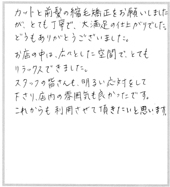 カットと前髪の縮毛矯正をお願いしました
が、とても丁寧で、大満足の仕上がりでした
どうもありがとうございました。
お店の中は、広々とした空間で、とても
リラックスできました。
スタッフの皆さんも、明るい応対をして
下さり、店内の雰囲気も良かったです。
これからも利用させて頂きたいと思います